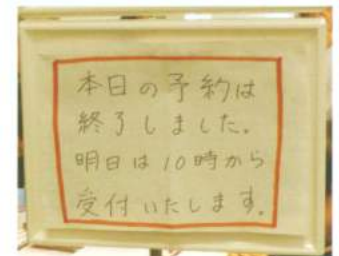 本日の予約は
終了しました。
明日は10時から
受付いたします。